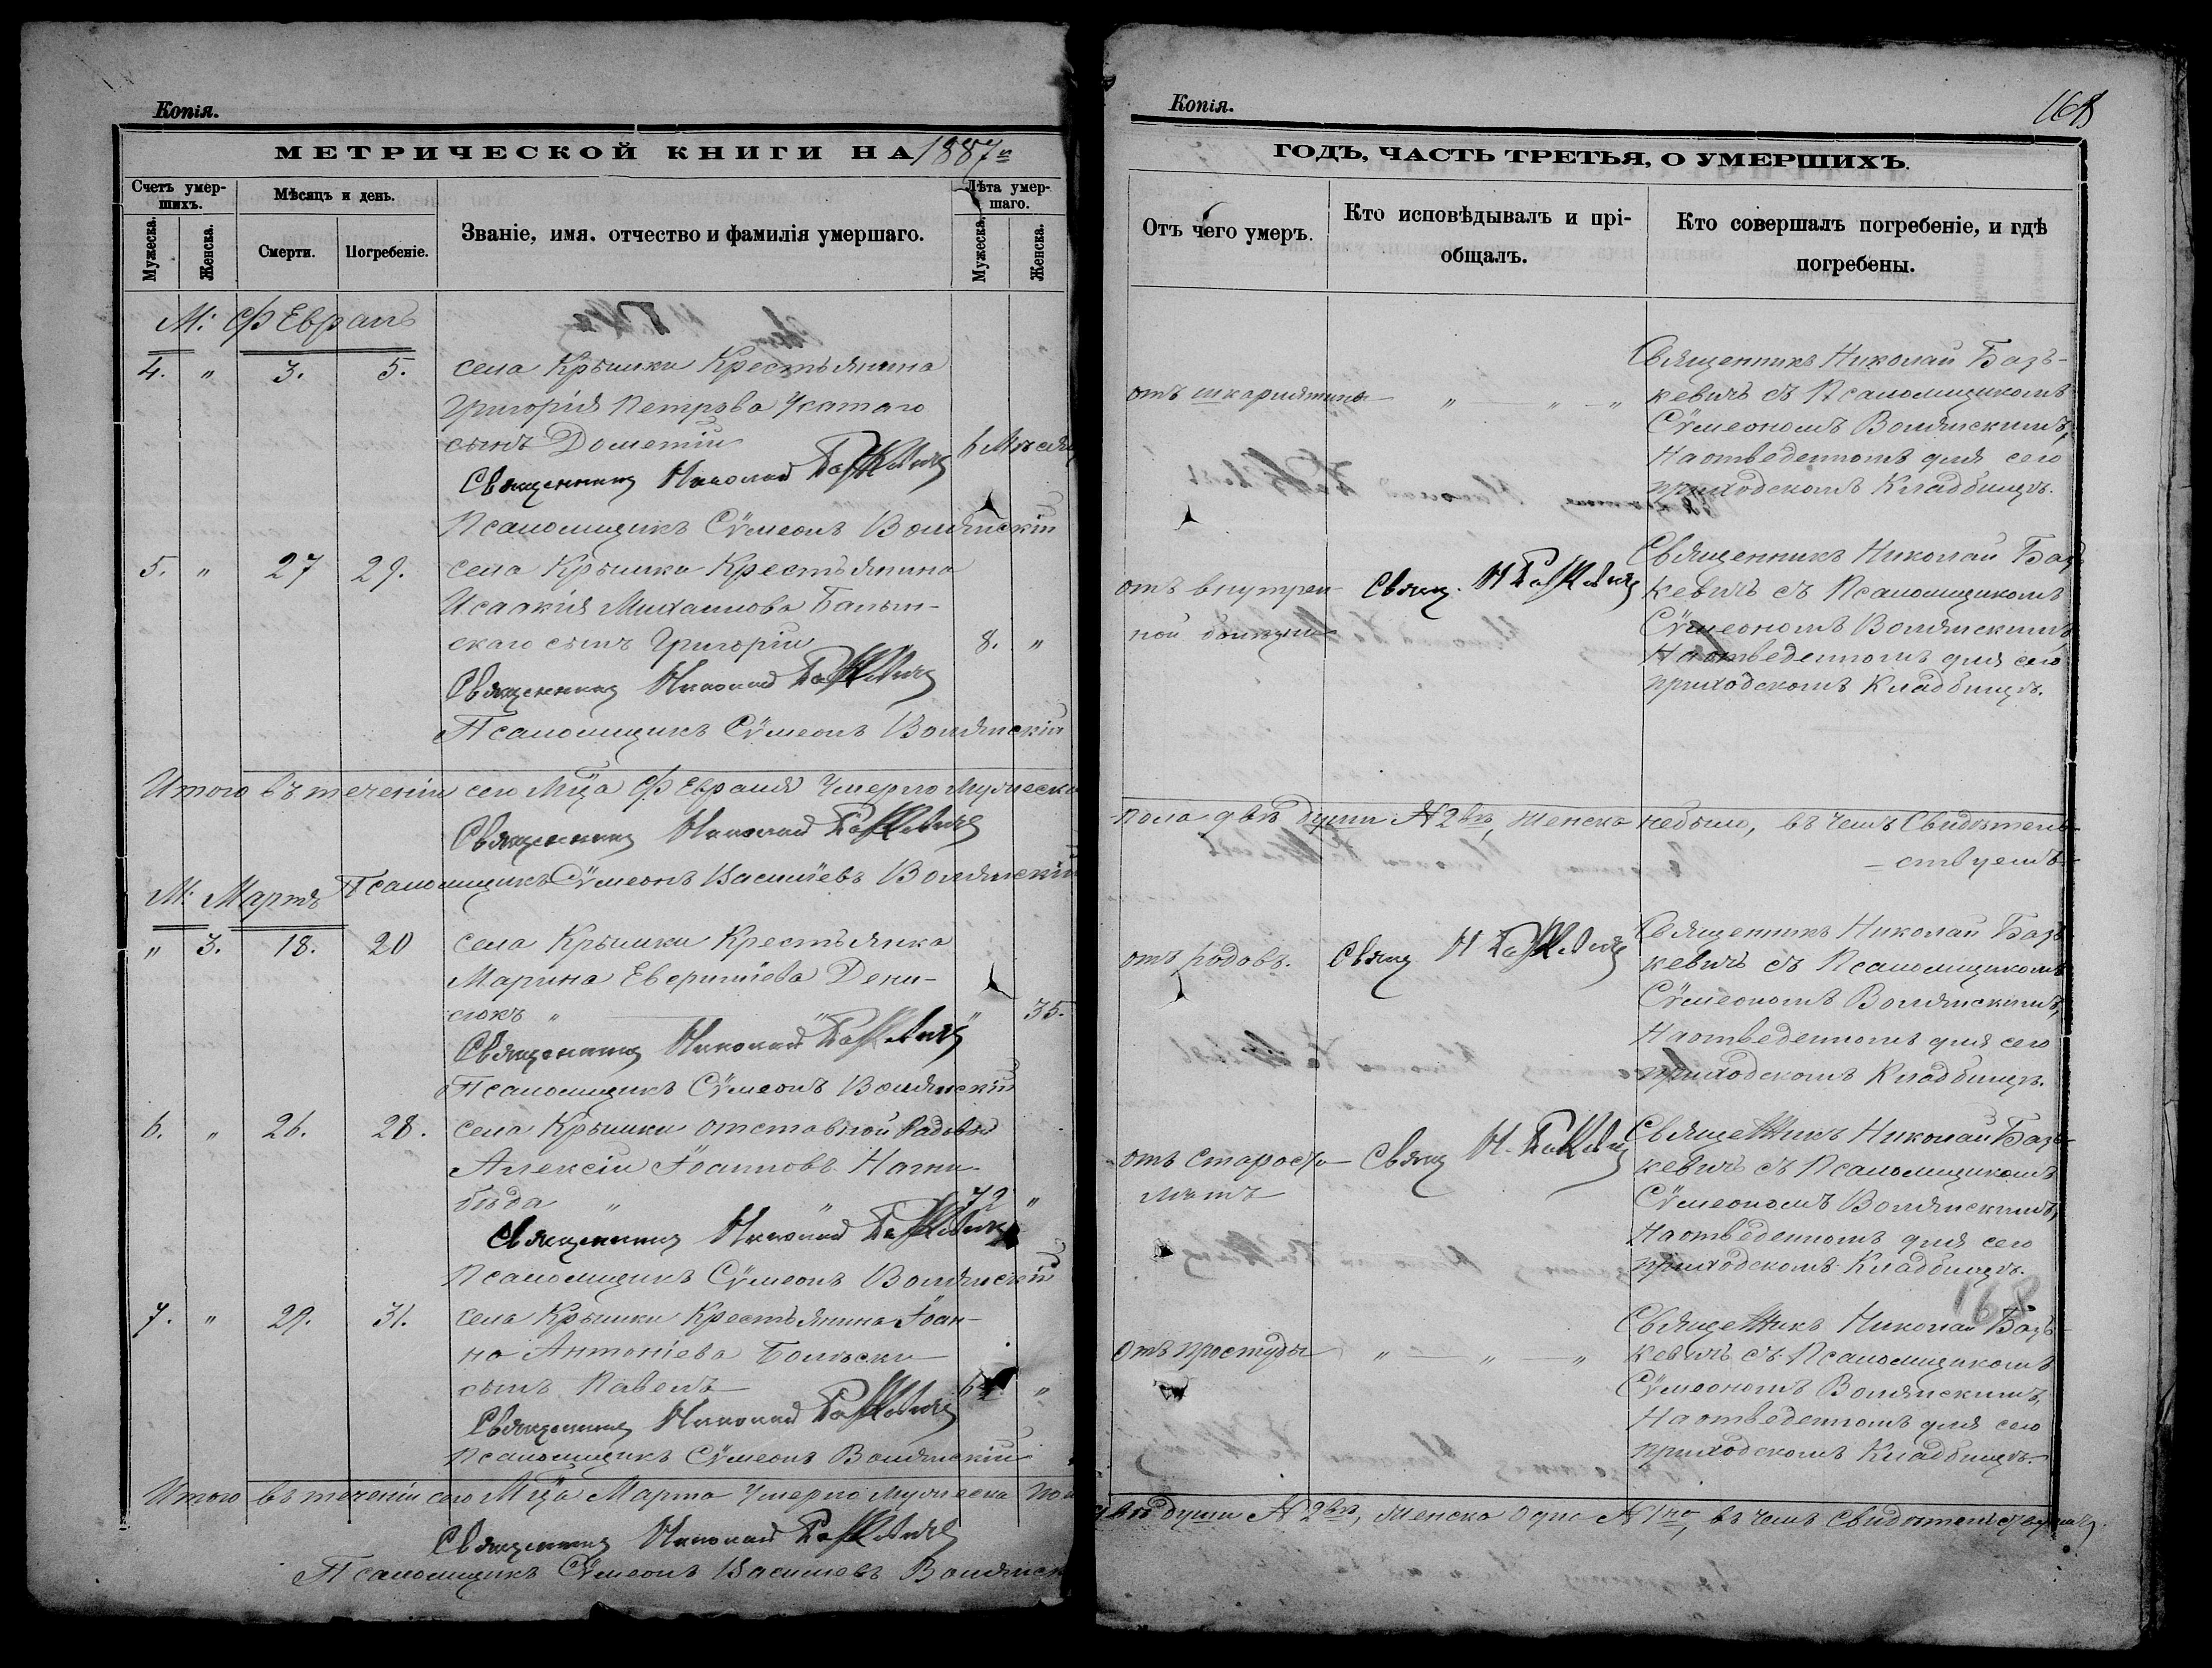 Копія.
МЕТРИЧЕСКОЙ КНИГИ НА 1887й
Счетъ умер-
шихъ.
Мѣсяцъ и день.
Званіе, имя. отчество и фамилія умершаго.
Лѣта умер-
шаго.
Мужеска.
Женска.
Смерти.
Погребеніе.
Мужеска.
Женска.
М: Февраль
4. " 3. 5. села Крымки Крестьянина
Григорія Петрова Усатаго
сынъ Дометій 6 Мѣсяц
Священникъ Николай
Псаломщикъ Сѵмеонъ Волянскій
5. " 27 29. села Крымки Крестьянина
Исаакія Михаилова
скаго сынъ Григорій 8. "
Священникъ Николай
Псаломщикъ Сѵмеонъ Волянскій
Итого въ теченіи сего Мца Февраля Умерло мужеска
Священникъ Николай
Псаломщикъ Сѵмеонъ Василіевъ Волянскій
М: Мартъ
" 3. 18. 20 села Крымки Крестьянка
Марина Дени-
сюкъ " " " 35.
Священникъ Николай
Псаломщикъ Сѵмеонъ Волянскій
6. " 26. 28. села Крымки отставной Рядовой
Алексій Іоанновъ
бѣда " 79 "
Священникъ Николай
Псаломщикъ Сѵмеонъ Волянскій
7. " 29. 31. села Крымки Крестьянина Іоан-
на Антоніева
сынъ Павелъ "
Священникъ Николай
Псаломщикъ Сѵмеонъ Волянскій
Итого въ теченіи сего Мца Марта Умерло мужеска пола
Священникъ Николай
Псаломщикъ Сѵмеонъ Василіевъ Волянск
Копія.
168
ГОДЪ, ЧАСТЬ ТРЕТЬЯ, О УМЕРШИХЪ.
Отъ чего умеръ.
Кто исповѣдывалъ и прі-
общалъ.
Кто совершалъ погребеніе, и гдѣ
погребены.
отъ шкарлятины " " "
Священникъ Николай Базь-
кевичъ съ Псаломщикомъ
Сѵмеономъ Волянскимъ,
На отведенномъ для сего
приходскомъ Кладбищѣ.
отъ внутрен-
ной болезни
Свящ. Н
Священникъ Николай Базь
кевичъ съ Псаломщикомъ
Сѵмеономъ Волянскимъ
На отведенномъ для сего
приходскомъ Кладбищѣ.
пола двѣ души №2вѣ, женска небыло, въ чемъ Свидѣтель-
ствуемъ
отъ родовъ.
Свящ Н
Священникъ Николай Базь
кевичъ съ Псаломщикомъ
Сѵмеономъ Волянскимъ,
На отведенномъ для сего
приходскомъ Кладбищѣ.
отъ старости
лѣтъ
Свящ Н.
Священникъ Николай Базь-
кевичъ съ Псаломщикомъ
Сѵмеономъ Волянскимъ,
На отведенномъ для сего
приходскомъ Кладбищѣ.
168
отъ простуды " " "
Священникъ Николай Базь-
кевичъ съ Псаломщикомъ
Сѵмеономъ Волянскимъ,
На отведенномъ для сего
приходскомъ Кладбищѣ.
двѣ души №2вѣ, женска одна №1на, въ чемъ свидѣтельствуемъ.